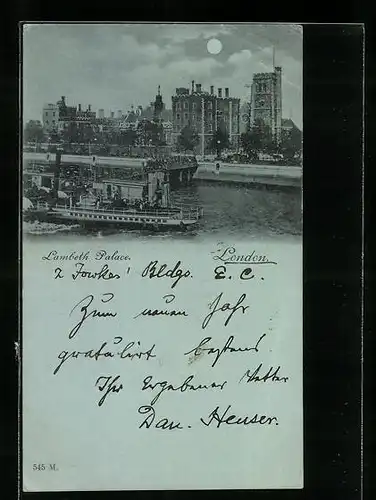 Lambeth Palace.
London.
2 Fowkes' Bldgs. E. C.
Zum neuen Jahr
gratulirt bestens
Ihr Ergebener Vetter
Dan. Heuser.
545 M.